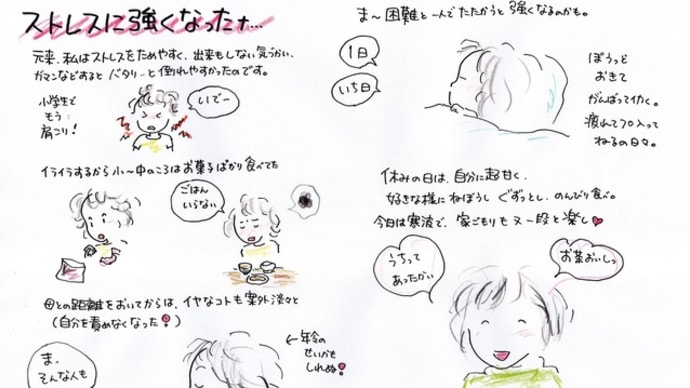 ストレスに強くなったナ…
元来、私はストレスをためやすく、出来もしない気づかい、
ガマンなどすると バタリーと倒れやすかったのです。
小学生で
もう
肩こり!
いでー
イライラするから小〜中のころはお菓子ばかり食べてた
ごはん
いらない
母との距離をおいてからは、イヤなコトも案外淡々と
(自分を責めなくなった!)
ま、
そんな人も
←年令の
せいかも
しれぬ!
ま〜困難と一人でたたかうと強くなるのかも。
1日
いち日
ぼうっと
おきて
がんばって行く。
疲れてフロ入って
ねるの日々。
休みの日は、自分に超甘く、
好きな様にねぼうし ぐずっとし、のんびり食べ。
今日は寒波で、家ごもりも又一段と楽し
うちって
あったかい
お茶おいしっ